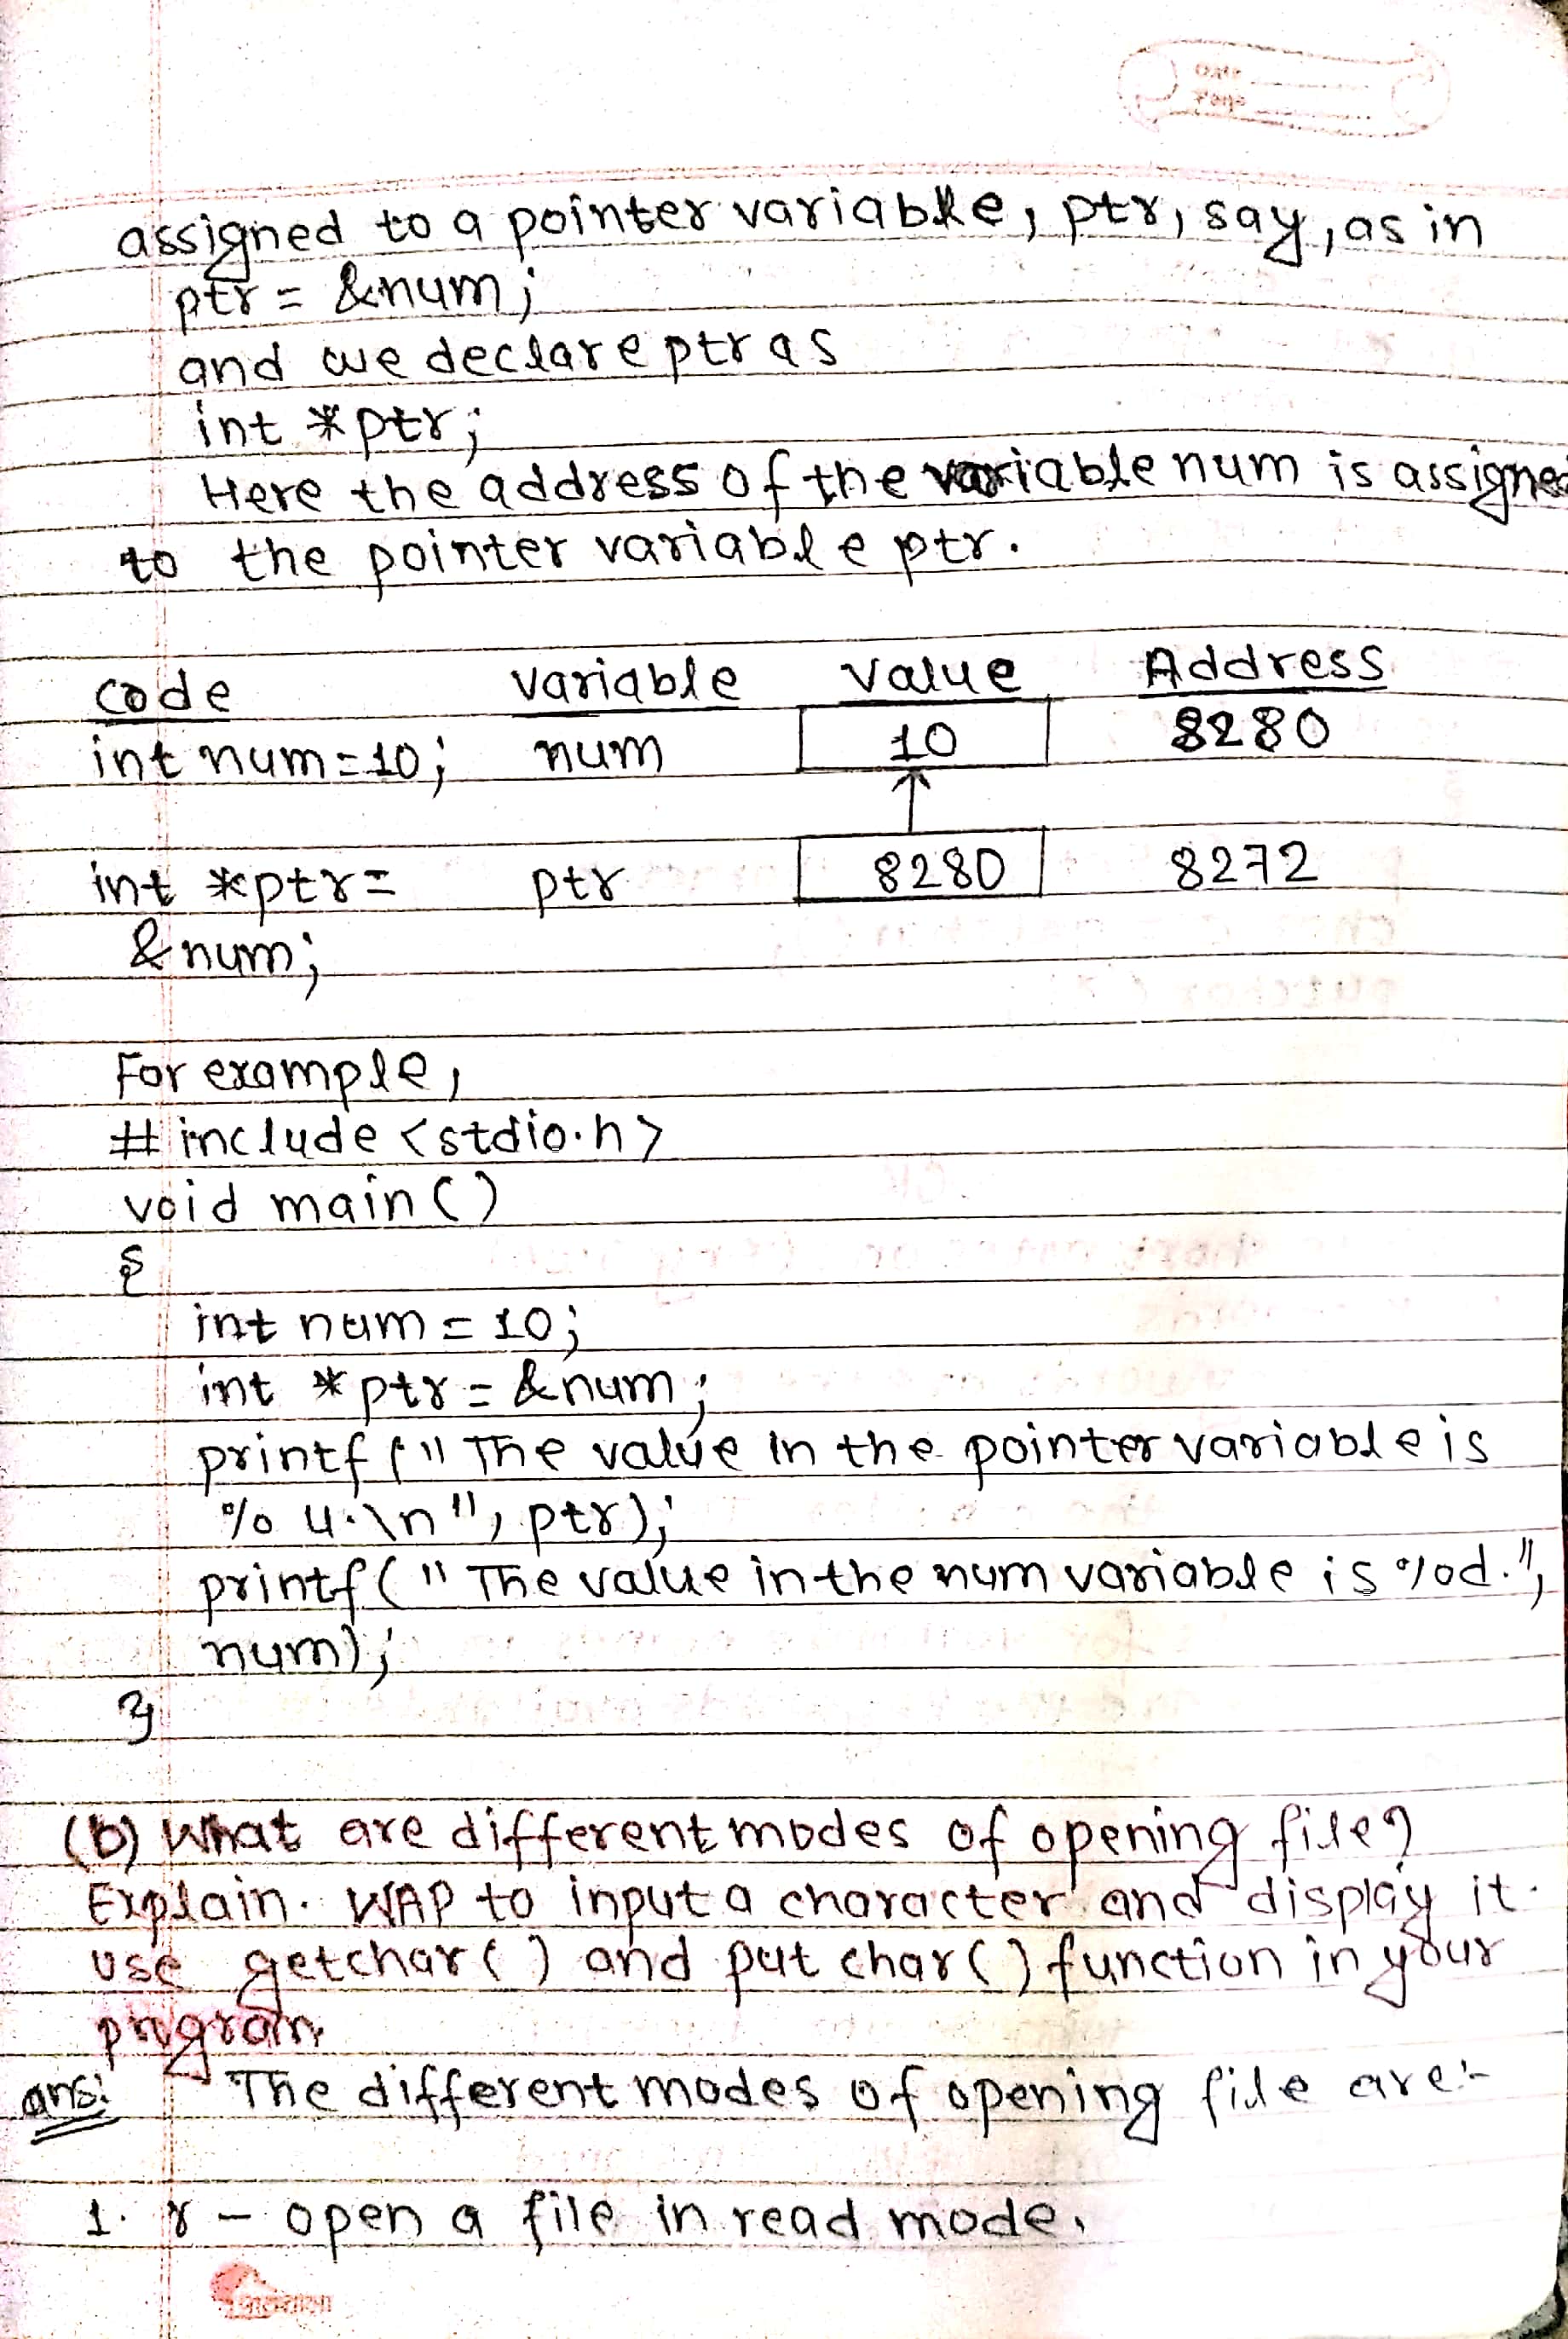 assigned to a pointer variable, ptr, say, as in
ptr = &num;
and we declare ptr as
int *ptr;
Here the address of the variable num is assigned
to the pointer variable ptr.
code variable value Address
int num=10; num 10 8280
int *ptr= ptr 8280 8272
&num;
For example,
#include <stdio.h>
void main()
{
int num = 10;
int *ptr = &num;
printf("The value in the pointer variable is
%u.\n", ptr);
printf("The value in the num variable is %d.",
num);
}
(b) What are different modes of opening file?
Explain. WAP to input a character and display it.
use getchar() and put char() function in your
program.
ans: The different modes of opening file are:-
1. r - open a file in read mode.